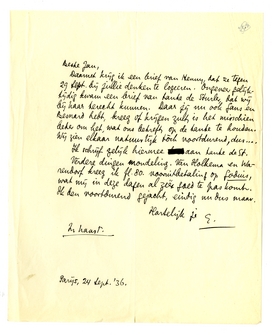 Beste Jan,
Daarnet krijg ik een brief van Henny, dat ze tegen
29 Sept. bij jullie denken te logeren. Ongeveer gelijk-
tijdig kwam een brief van tante de Sturler, dat wij
bij haar terecht kunnen. Daar jij nu ook Fans en
Bernard hebt, kreeg of krijgen zult, is het misschien
beter om het, wat ons betreft, op de tante te houden.
Wij zien elkaar natuurlijk toch voortdurend, dus...
Ik schrijf gelijk hiermee aan tante de St.
Verdere dingen mondeling. Van Holkema en Wa-
rendorf kreeg ik fl 80. vooruitbetaling op
wat mij in deze hafen al zéér goed te pas komt.
Ik ben voortdurend gejacht, eindig nu dus maar.
Hartelijk je E.
In haast.
Parijs, 24 Sept. '36.